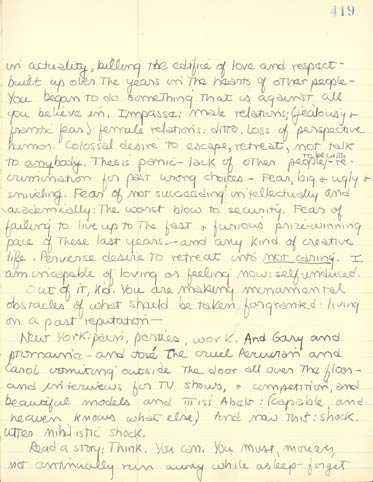 419
in actuality, killing the edifice of love and respect -
built up over the years in the hearts of other people -
You began to do something that is against all
you believe in. Impasse: male relations; (jealousy &
frantic fear) female relations: ditto. Loss of perspective
humor. Colossal desire to escape, retreat, not talk
to anybody. Thesis panic - lack of other people to be with - re-
crimination for past wrong choices - Fear, big & ugly &
sniveling. Fear of not succeeding intellectually and
academically: The worst blow to security. Fear of
failing to live up to the fast & furious prize-winning
pace of these last years - and any kind of creative
life. Perverse desire to retreat into not caring. I
am incapable of loving or feeling now: self-induced.
Out of it, kid. You are making monumental
obstacles of what should be taken for granted: living
on a past reputation -
New York: pain, parties, work. And Gary and
ptomaine - and José the cruel Peruvian and
Carol vomiting outside the door all over the floor -
and interviews for TV shows, & competition, and
beautiful models and Miss Abels: (capable, and
heaven knows what else) And now this: shock.
Utter nihilistic shock.
Read a story: Think. You can. You must, moreover,
not continually run away while asleep - forget